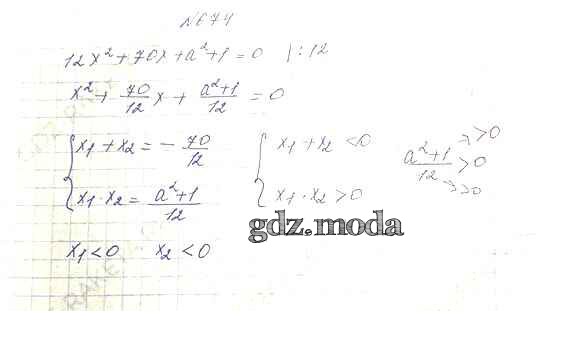 №674
12x² + 70x + a² + 1 = 0 |:12
x² + 70/12 x + (a²+1)/12 = 0
{ x₁ + x₂ = - 70/12
x₁ · x₂ = (a²+1)/12
{ x₁ + x₂ < 0
x₁ · x₂ > 0
(a²+1)/12 > 0 → > 0
→ > 0
gdz.moda
x₁ < 0 x₂ < 0